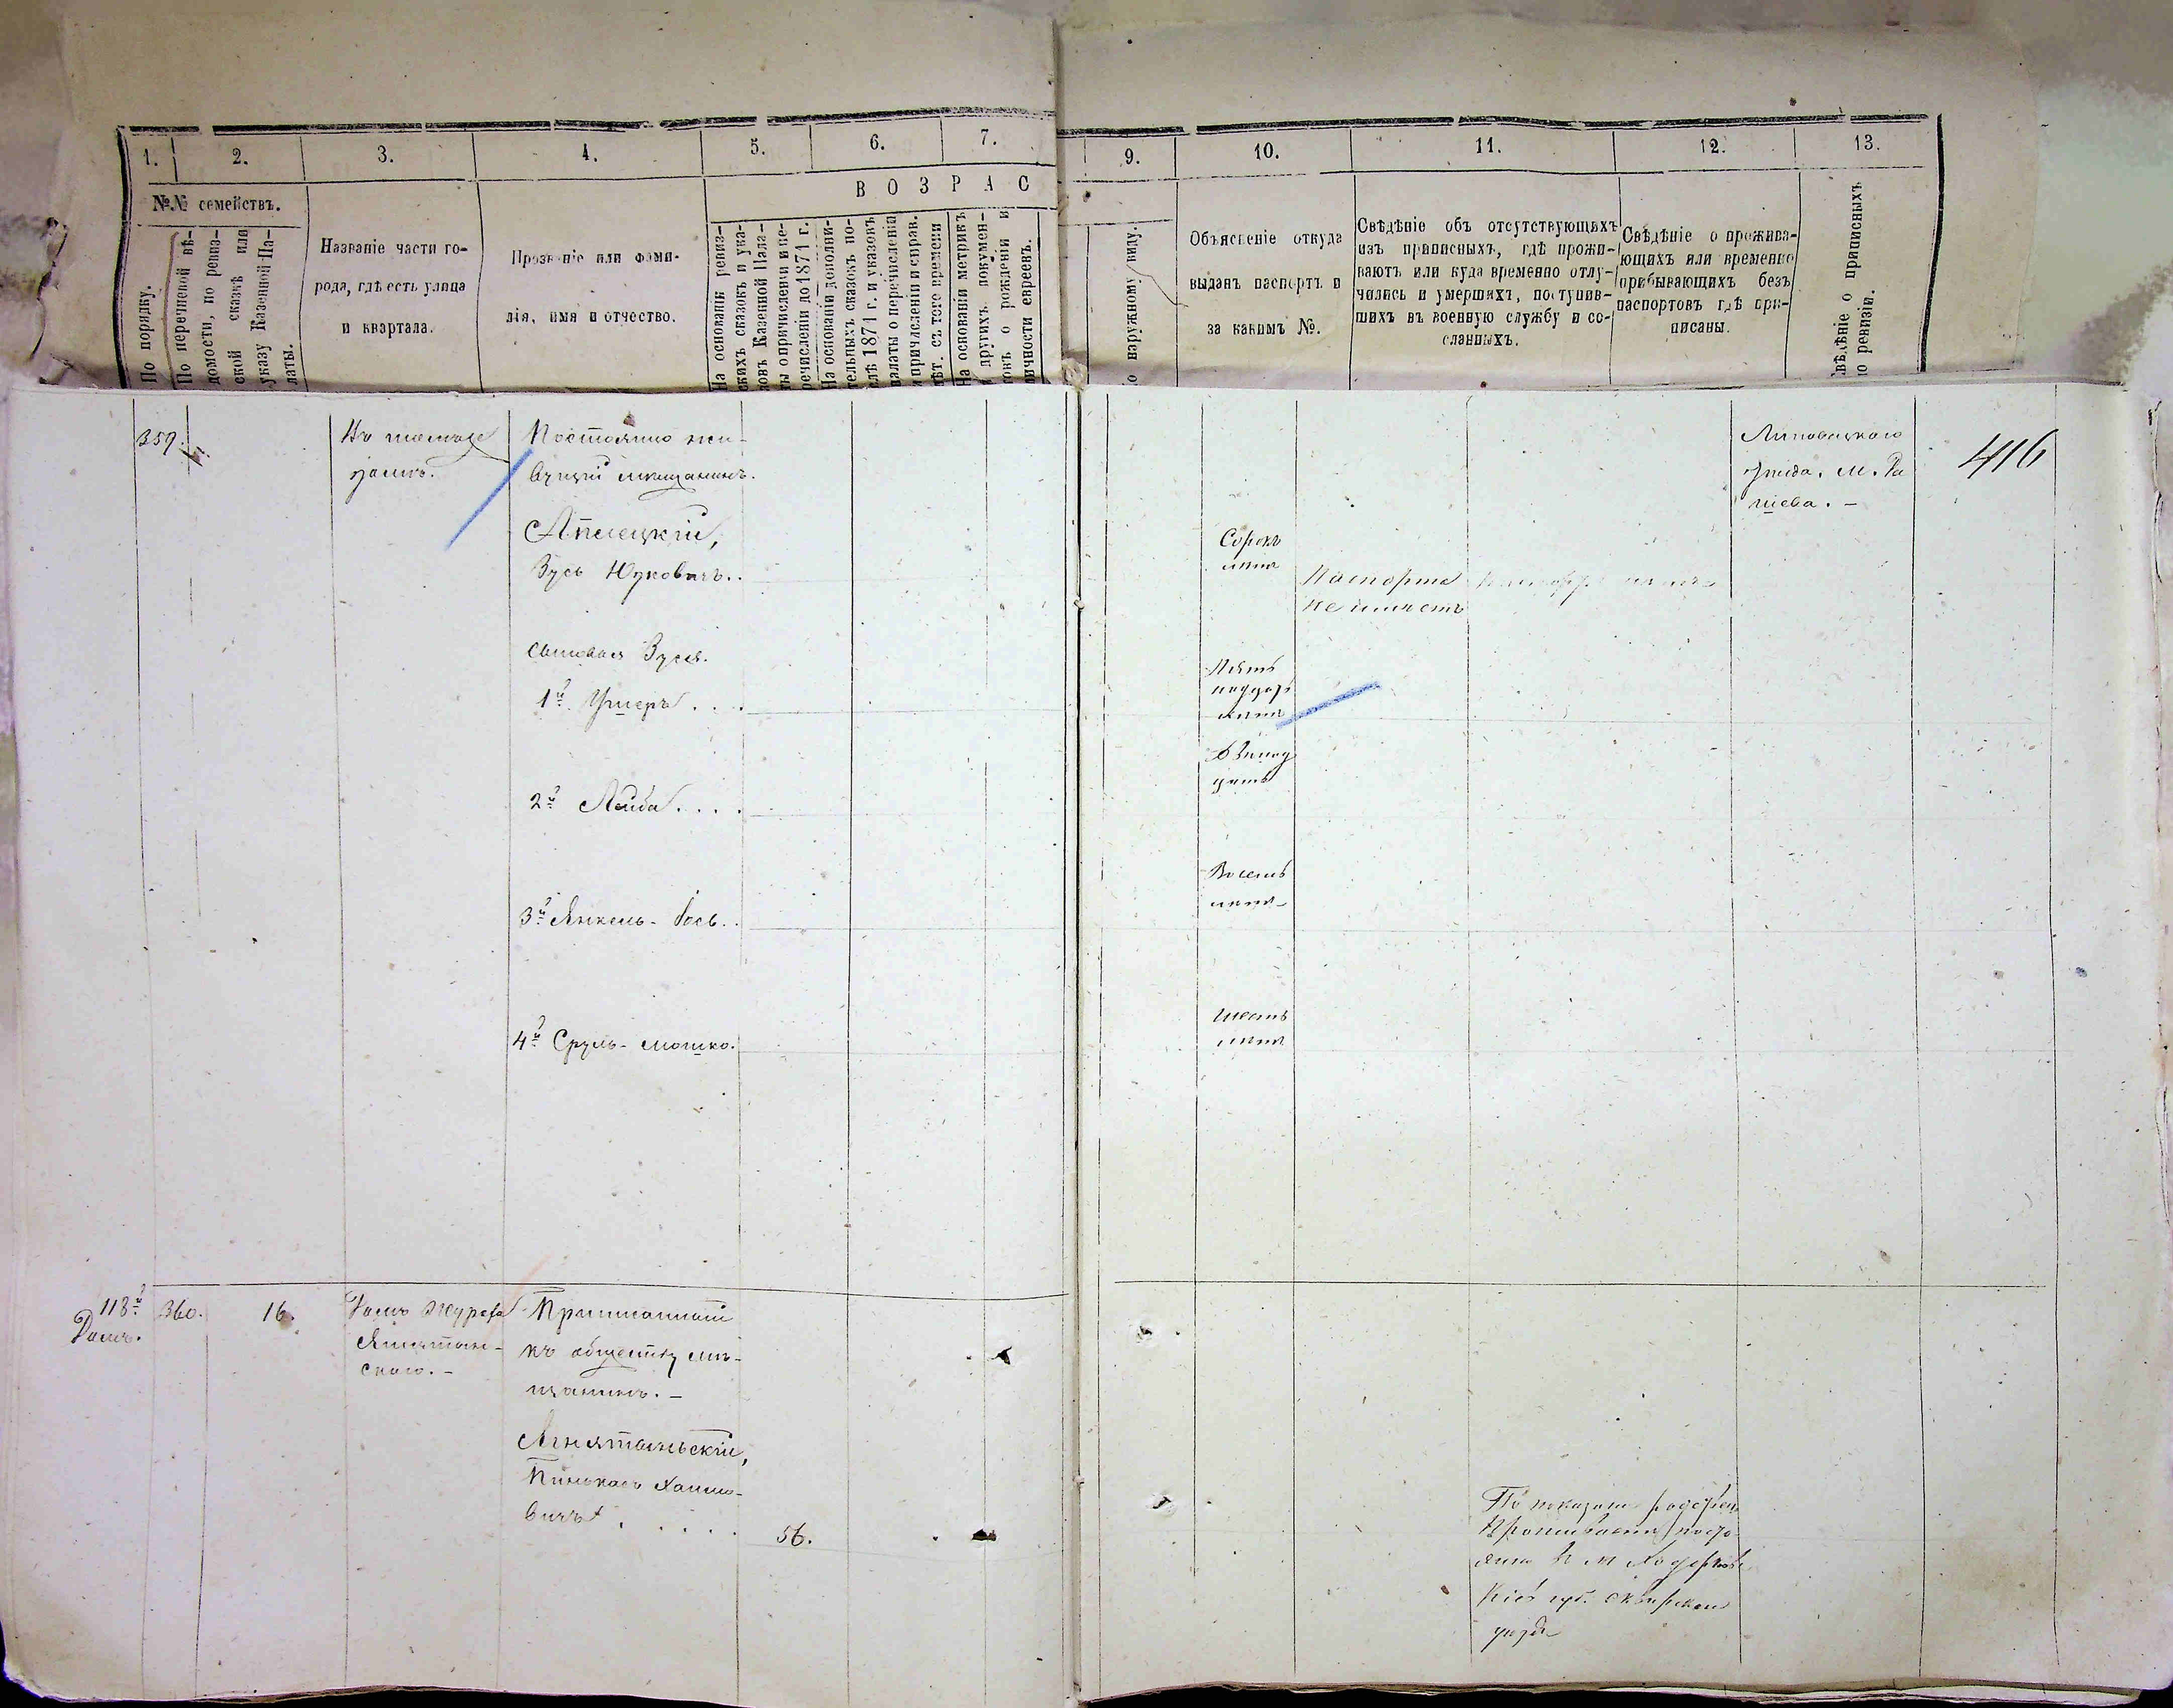 1.
2.
3.
4.
5.
6.
7.
9.
10.
11.
12.
13.
ВОЗРАС
№№ семействъ.
По порядку.
По перечневой вѣ-
домости, по ревиз-
ской сказкѣ или
указу Казенной Па-
латы.
Названіе части го-
рода, гдѣ есть улица
и квартала.
Прозваніе или фами-
лія, имя и отчество.
На основаніи ревиз-
скихъ сказокъ и ука-
зовъ Казенной Пала-
ты о причисленіи и пе-
речисленіи до 1871 г.
На основаніи дополни-
тельныхъ сказокъ по-
слѣ 1871 г. и указовъ
палаты о перечисленіи
и причисленіи и справ.
лѣт. съ того времени
На основаніи метрикъ
и другихъ докумен-
товъ о рожденіи и
личности евреевъ.
о наружному виду.
Объясненіе откуда
выданъ паспортъ и
за какимъ №.
Свѣдѣніе объ отсутствующихъ
изъ приписныхъ, гдѣ прожи-
ваютъ или куда временно отлу-
чились и умершихъ, поступив-
шихъ въ военную службу и со-
сланныхъ.
Свѣдѣніе о прожива-
ющихъ или временно
прибывающихъ безъ
паспортовъ гдѣ при-
писаны.
Свѣдѣніе о приписныхъ
по ревизіи.
359.
Въ томъ же
домѣ.
Постоянно жи-
вущій мещанинъ.
Зусь
Сорокъ
лѣтъ
Паспорта
не имѣетъ
Липовецкого
уѣзда. м.
416
Сыновья Зуся.
1й Ушеръ . . .
Пять
надцать
лѣтъ
2й Лейба. . . .
Двѣнад
цать
3й Янкель-Іось. .
Восемь
лѣтъ
4й Сруль-Мошко.
Шесть
лѣтъ
118й
Домъ.
360.
16.
Домъ
скаго. –
Приписанный
къ обществу мѣ-
щанинъ. –
Пинькасъ Хаимо-
вичъ . . . . .
56.
По показанію
Проживаетъ посто-
янно в м Ходорков
Кіев губ. Сквирскаго
уезда